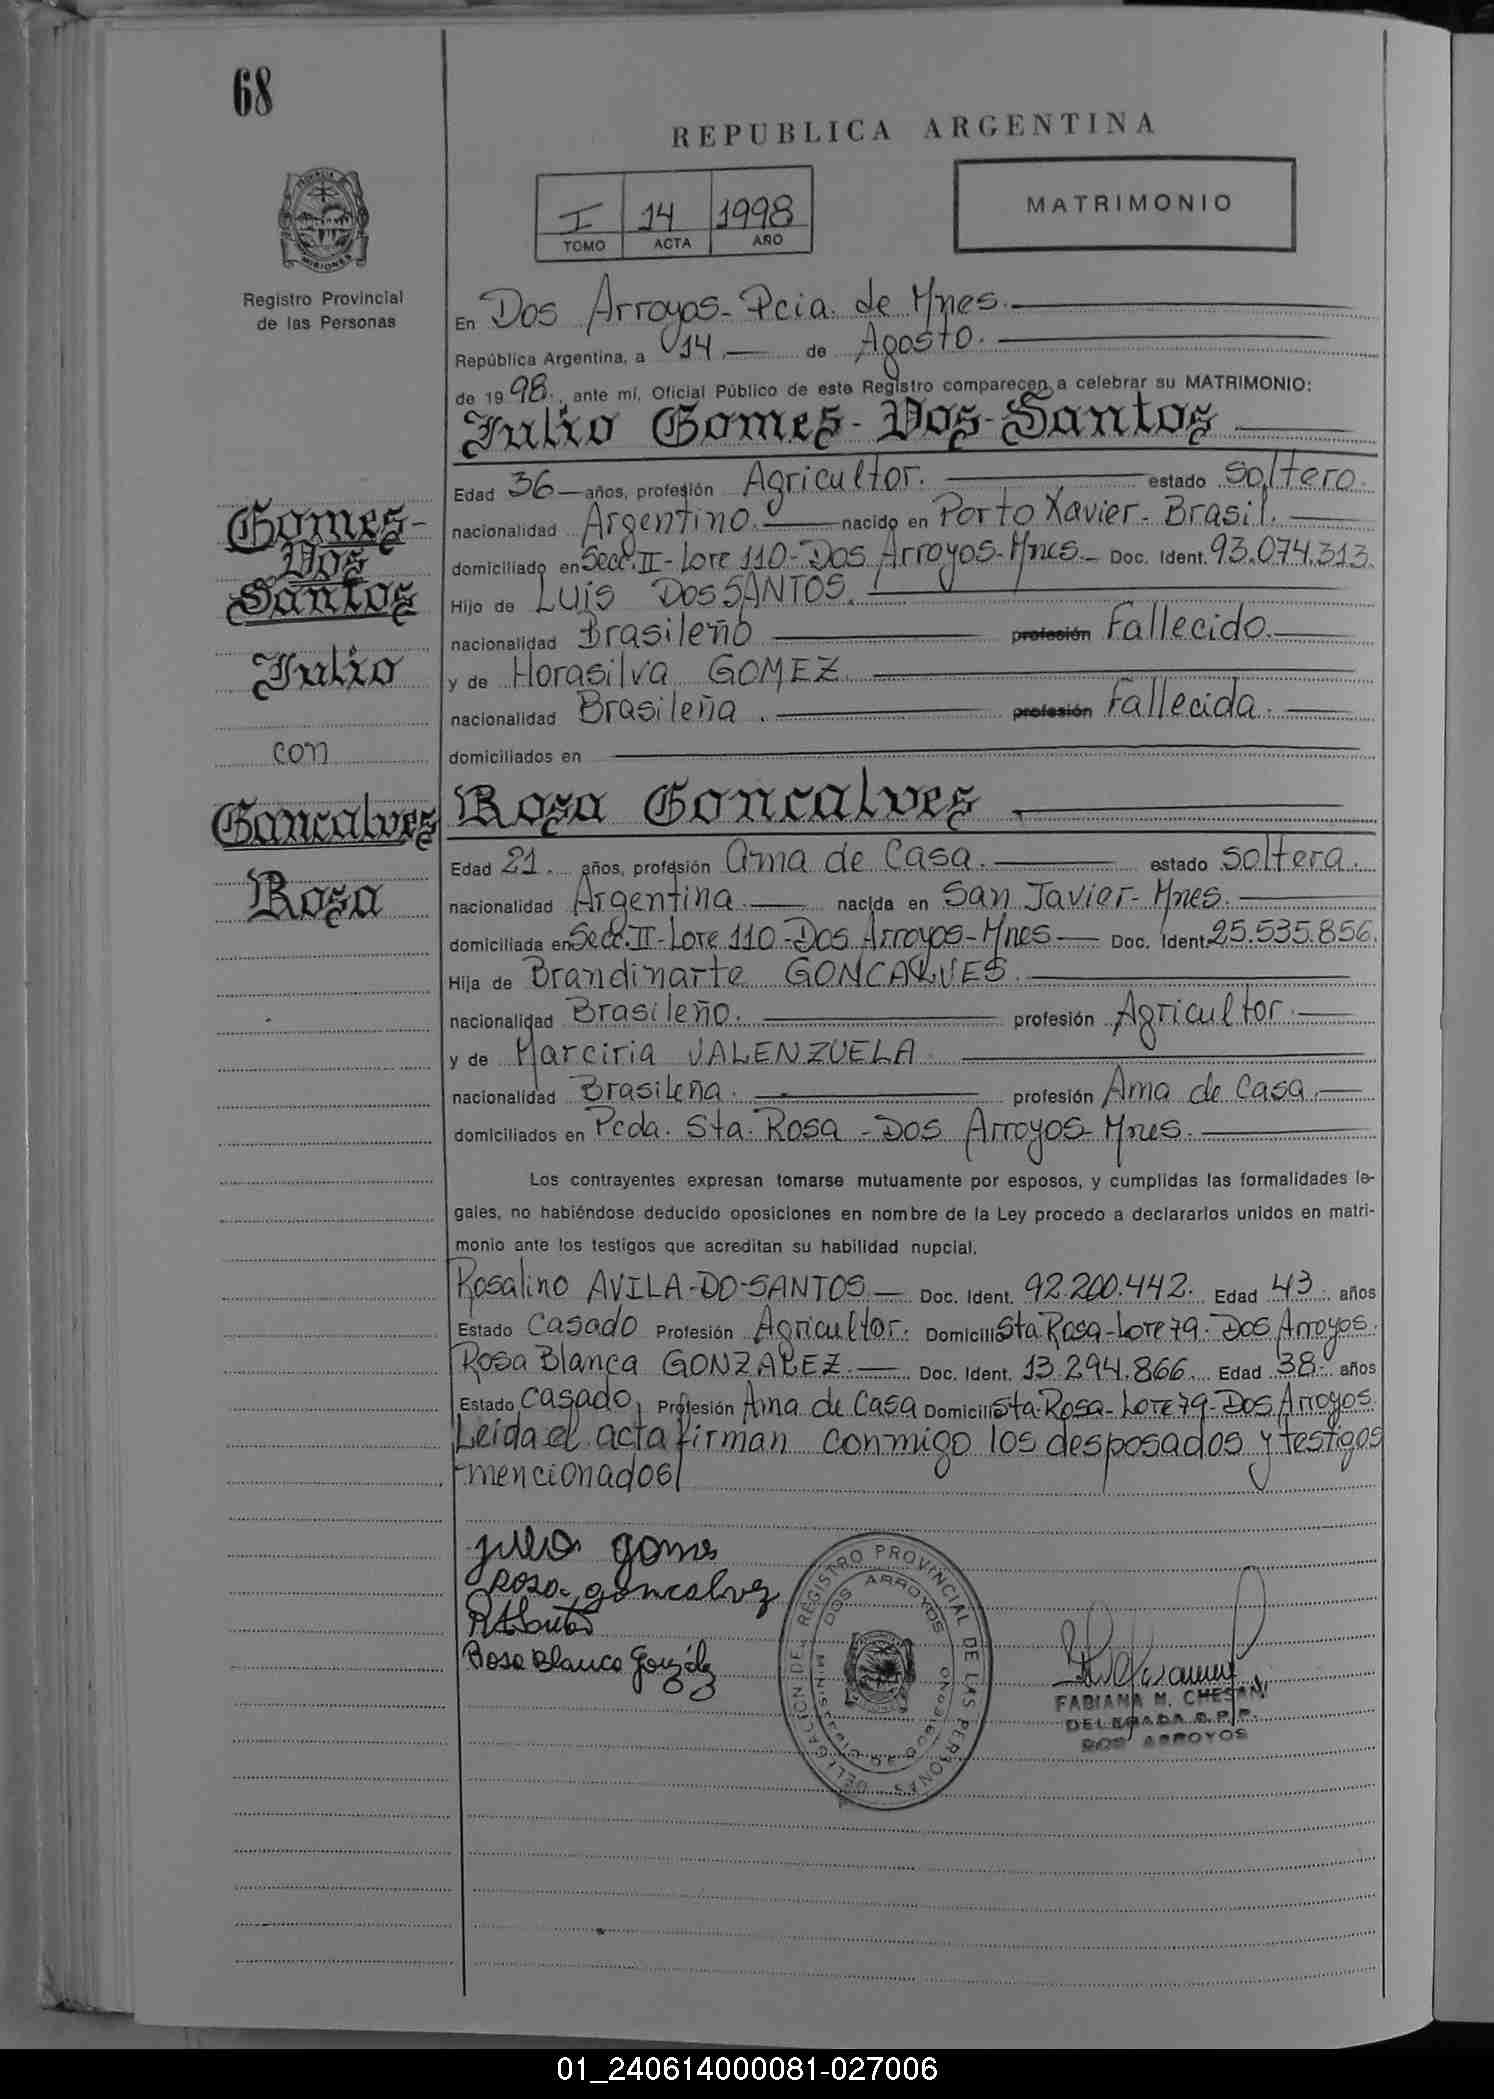 68
REPUBLICA ARGENTINA
I 14 1998
TOMO ACTA AÑO
MATRIMONIO
MISIONES
Registro Provincial
de las Personas
En Dos Arroyos- Pcia. de Mnes.
República Argentina, a 14 de Agosto.
de 19 98., ante mí, Oficial Público de este Registro comparecen a celebrar su MATRIMONIO:
Julio Gomes-Dos-Santos
Edad 36 años, profesión Agricultor. estado soltero.
nacionalidad Argentino. nacido en Porto Xavier- Brasil.
domiciliado en Secc. II- Lote 110- Dos Arroyos- Mnes.- Doc. Ident. 93.074.313.
Hijo de Luis DOS SANTOS.
nacionalidad Brasileño profesión Fallecido.
y de Horasilva GOMEZ.
nacionalidad Brasileña. profesión Fallecida.
domiciliados en
Gomes-
Dos
Santos
Julio
con
Goncalves
Rosa
Rosa Goncalves
Edad 21. años, profesión Ama de Casa. estado soltera.
nacionalidad Argentina. nacida en San Javier- Mnes.
domiciliada en Secc. II- Lote 110- Dos Arroyos- Mnes Doc. Ident. 25.535.856.
Hija de Brandinarte GONCALVES.
nacionalidad Brasileño. profesión Agricultor.
y de Marciria VALENZUELA.
nacionalidad Brasileña. profesión Ama de Casa.
domiciliados en Pcda. Sta. Rosa - Dos Arroyos- Mnes.
Los contrayentes expresan tomarse mutuamente por esposos, y cumplidas las formalidades le-
gales, no habiéndose deducido oposiciones en nombre de la Ley procedo a declararlos unidos en matri-
monio ante los testigos que acreditan su habilidad nupcial.
Rosalino AVILA-DO-SANTOS Doc. Ident. 92.200.442. Edad 43 años
Estado Casado Profesión Agricultor. Domicili Sta Rosa- Lote 79- Dos Arroyos.
Rosa Blanca GONZALEZ. Doc. Ident. 13.294.866 Edad 38- años
Estado Casado, Profesión Ama de Casa Domicili Sta. Rosa- Lote 79- Dos Arroyos.
Leida el acta firman conmigo los desposados y testigos
mencionados
julio gomes
Rosa goncalvez
Rosa Blanca González
DELEGACION DE REGISTRO PROVINCIAL DE LAS PERSONAS
DOS ARROYOS
FABIANA M. CHESANI
DELEGADA R.P.P.
DOS ARROYOS
01_240614000081-027006